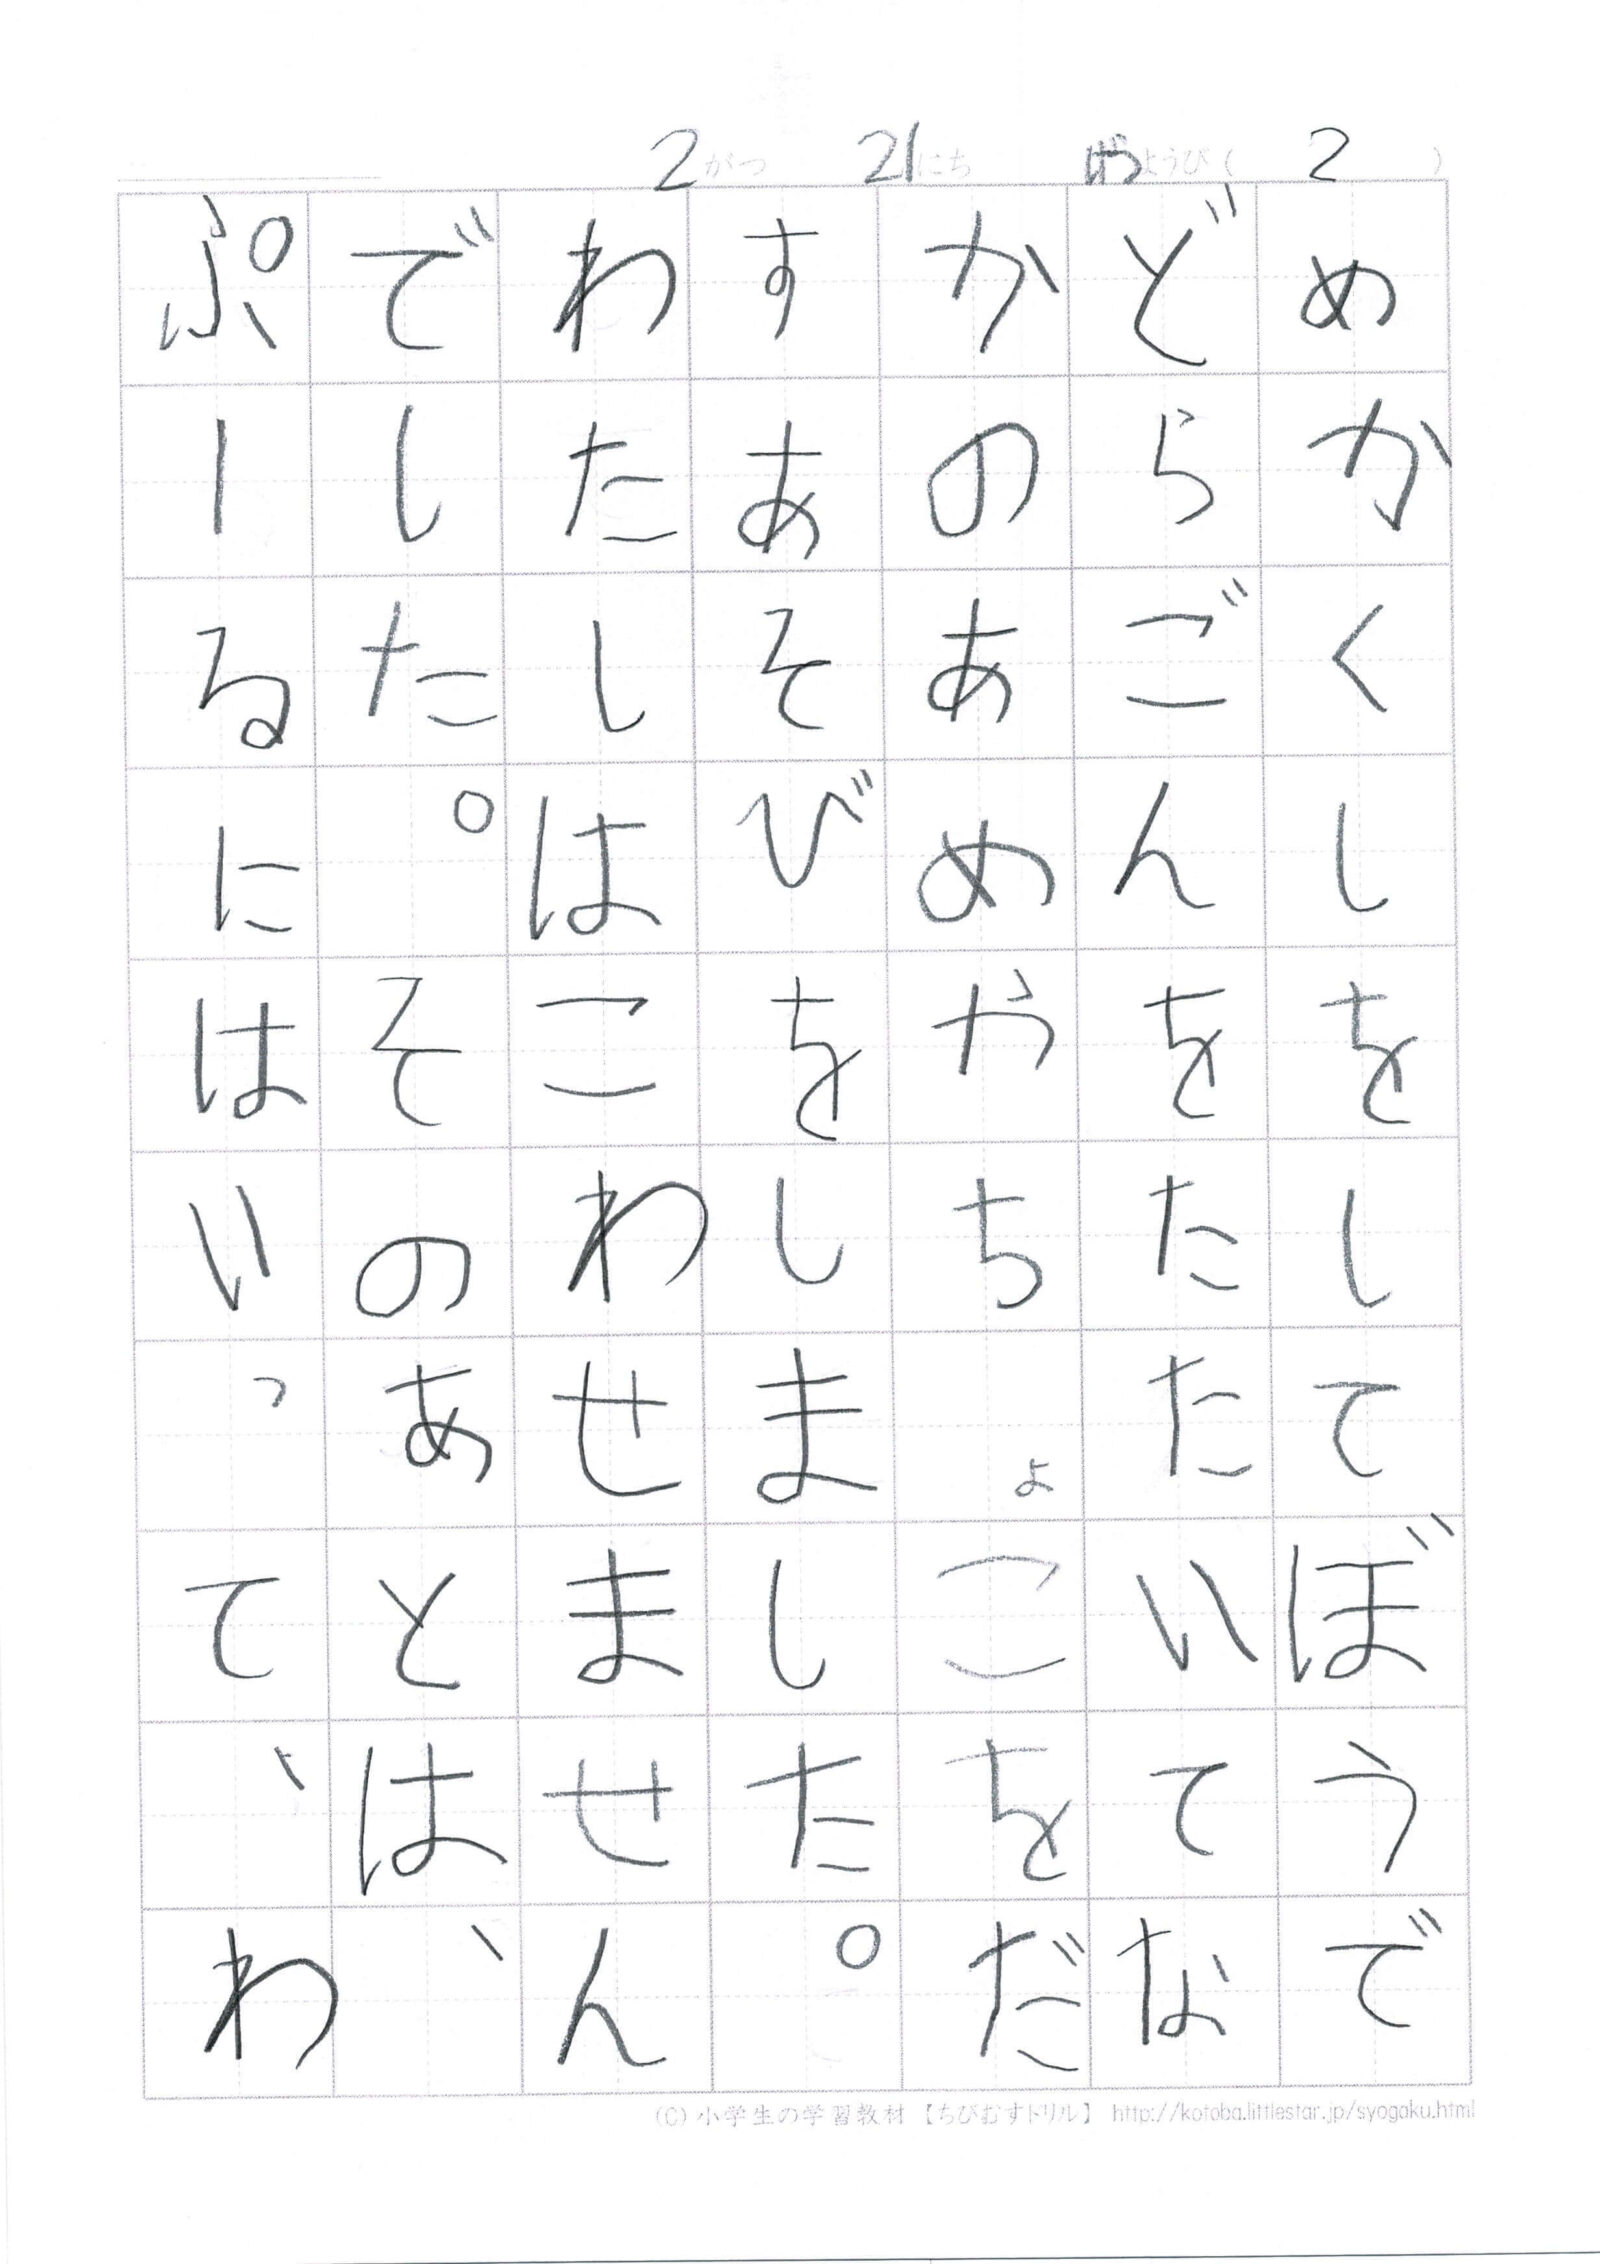 2がつ 21にち げつようび( 2 )
めかくしをしてぼうで
どらごんをたたいてな
かのあめやちょこをだ
すあそびをしました。
わたしはこわせません
でした。そのあとは、
ぷーるにはいって、わ
(C) 小学生の学習教材 【ちびむすドリル】 http://kotoba.littlestar.jp/syogaku.html